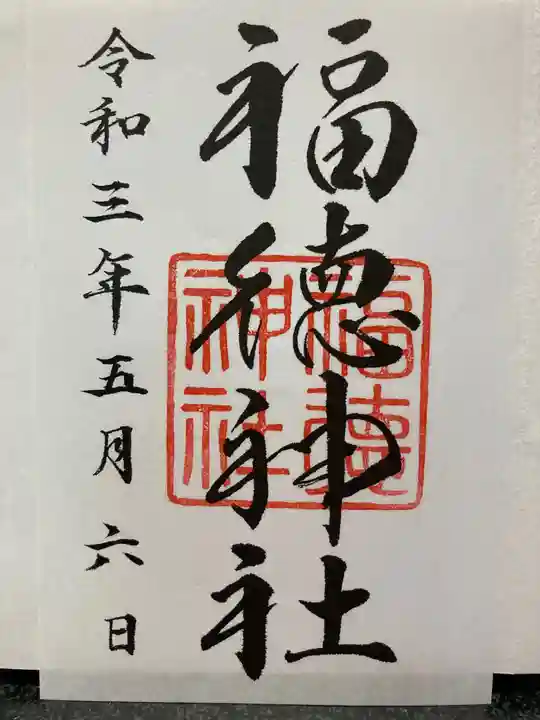 福徳神社
福徳神社
令和三年五月六日